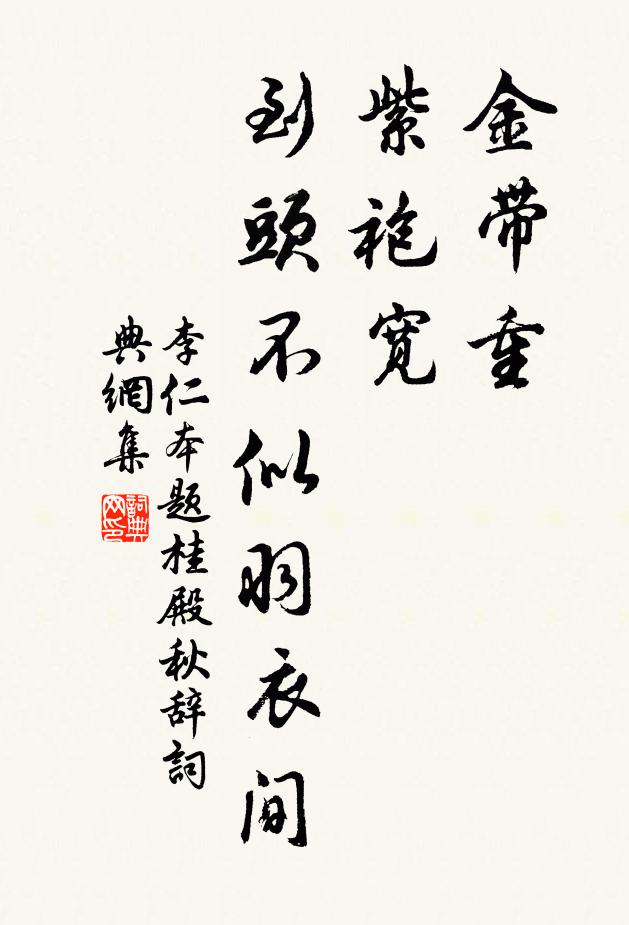 金帶重
紫袍寬
到頭不似羽衣間
李仁本題桂殿秋辞詞
典網集
詞典網印